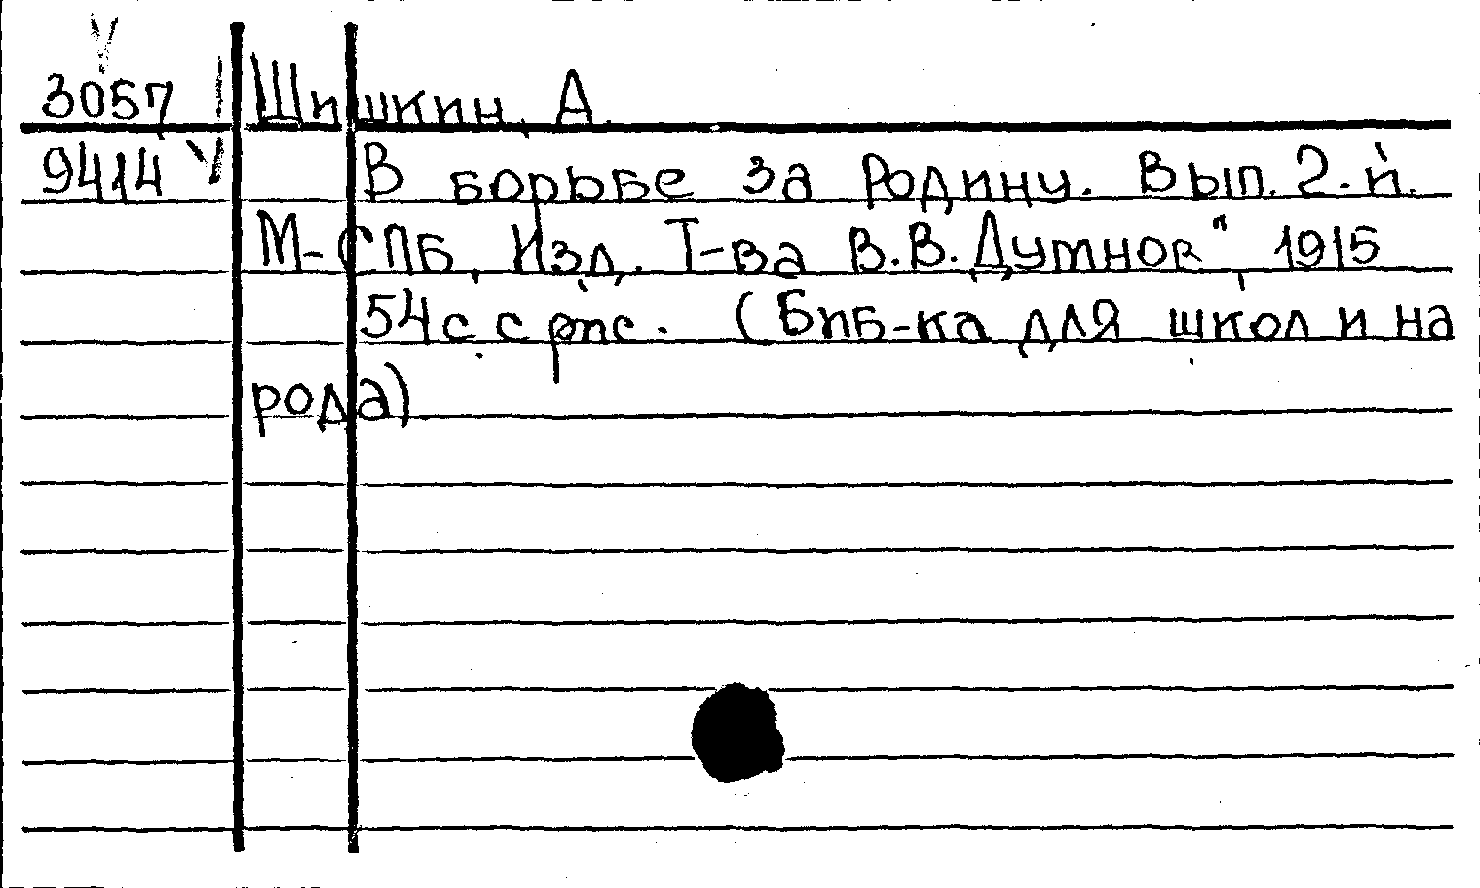 3057 Шишкин, А.
9414 В борьбе за Родину. Вып. 2-й.
М-СПБ, Изд. Т-ва В.В. Думнов", 1915
54 с. с рис. (Биб-ка для школ и на
рода)